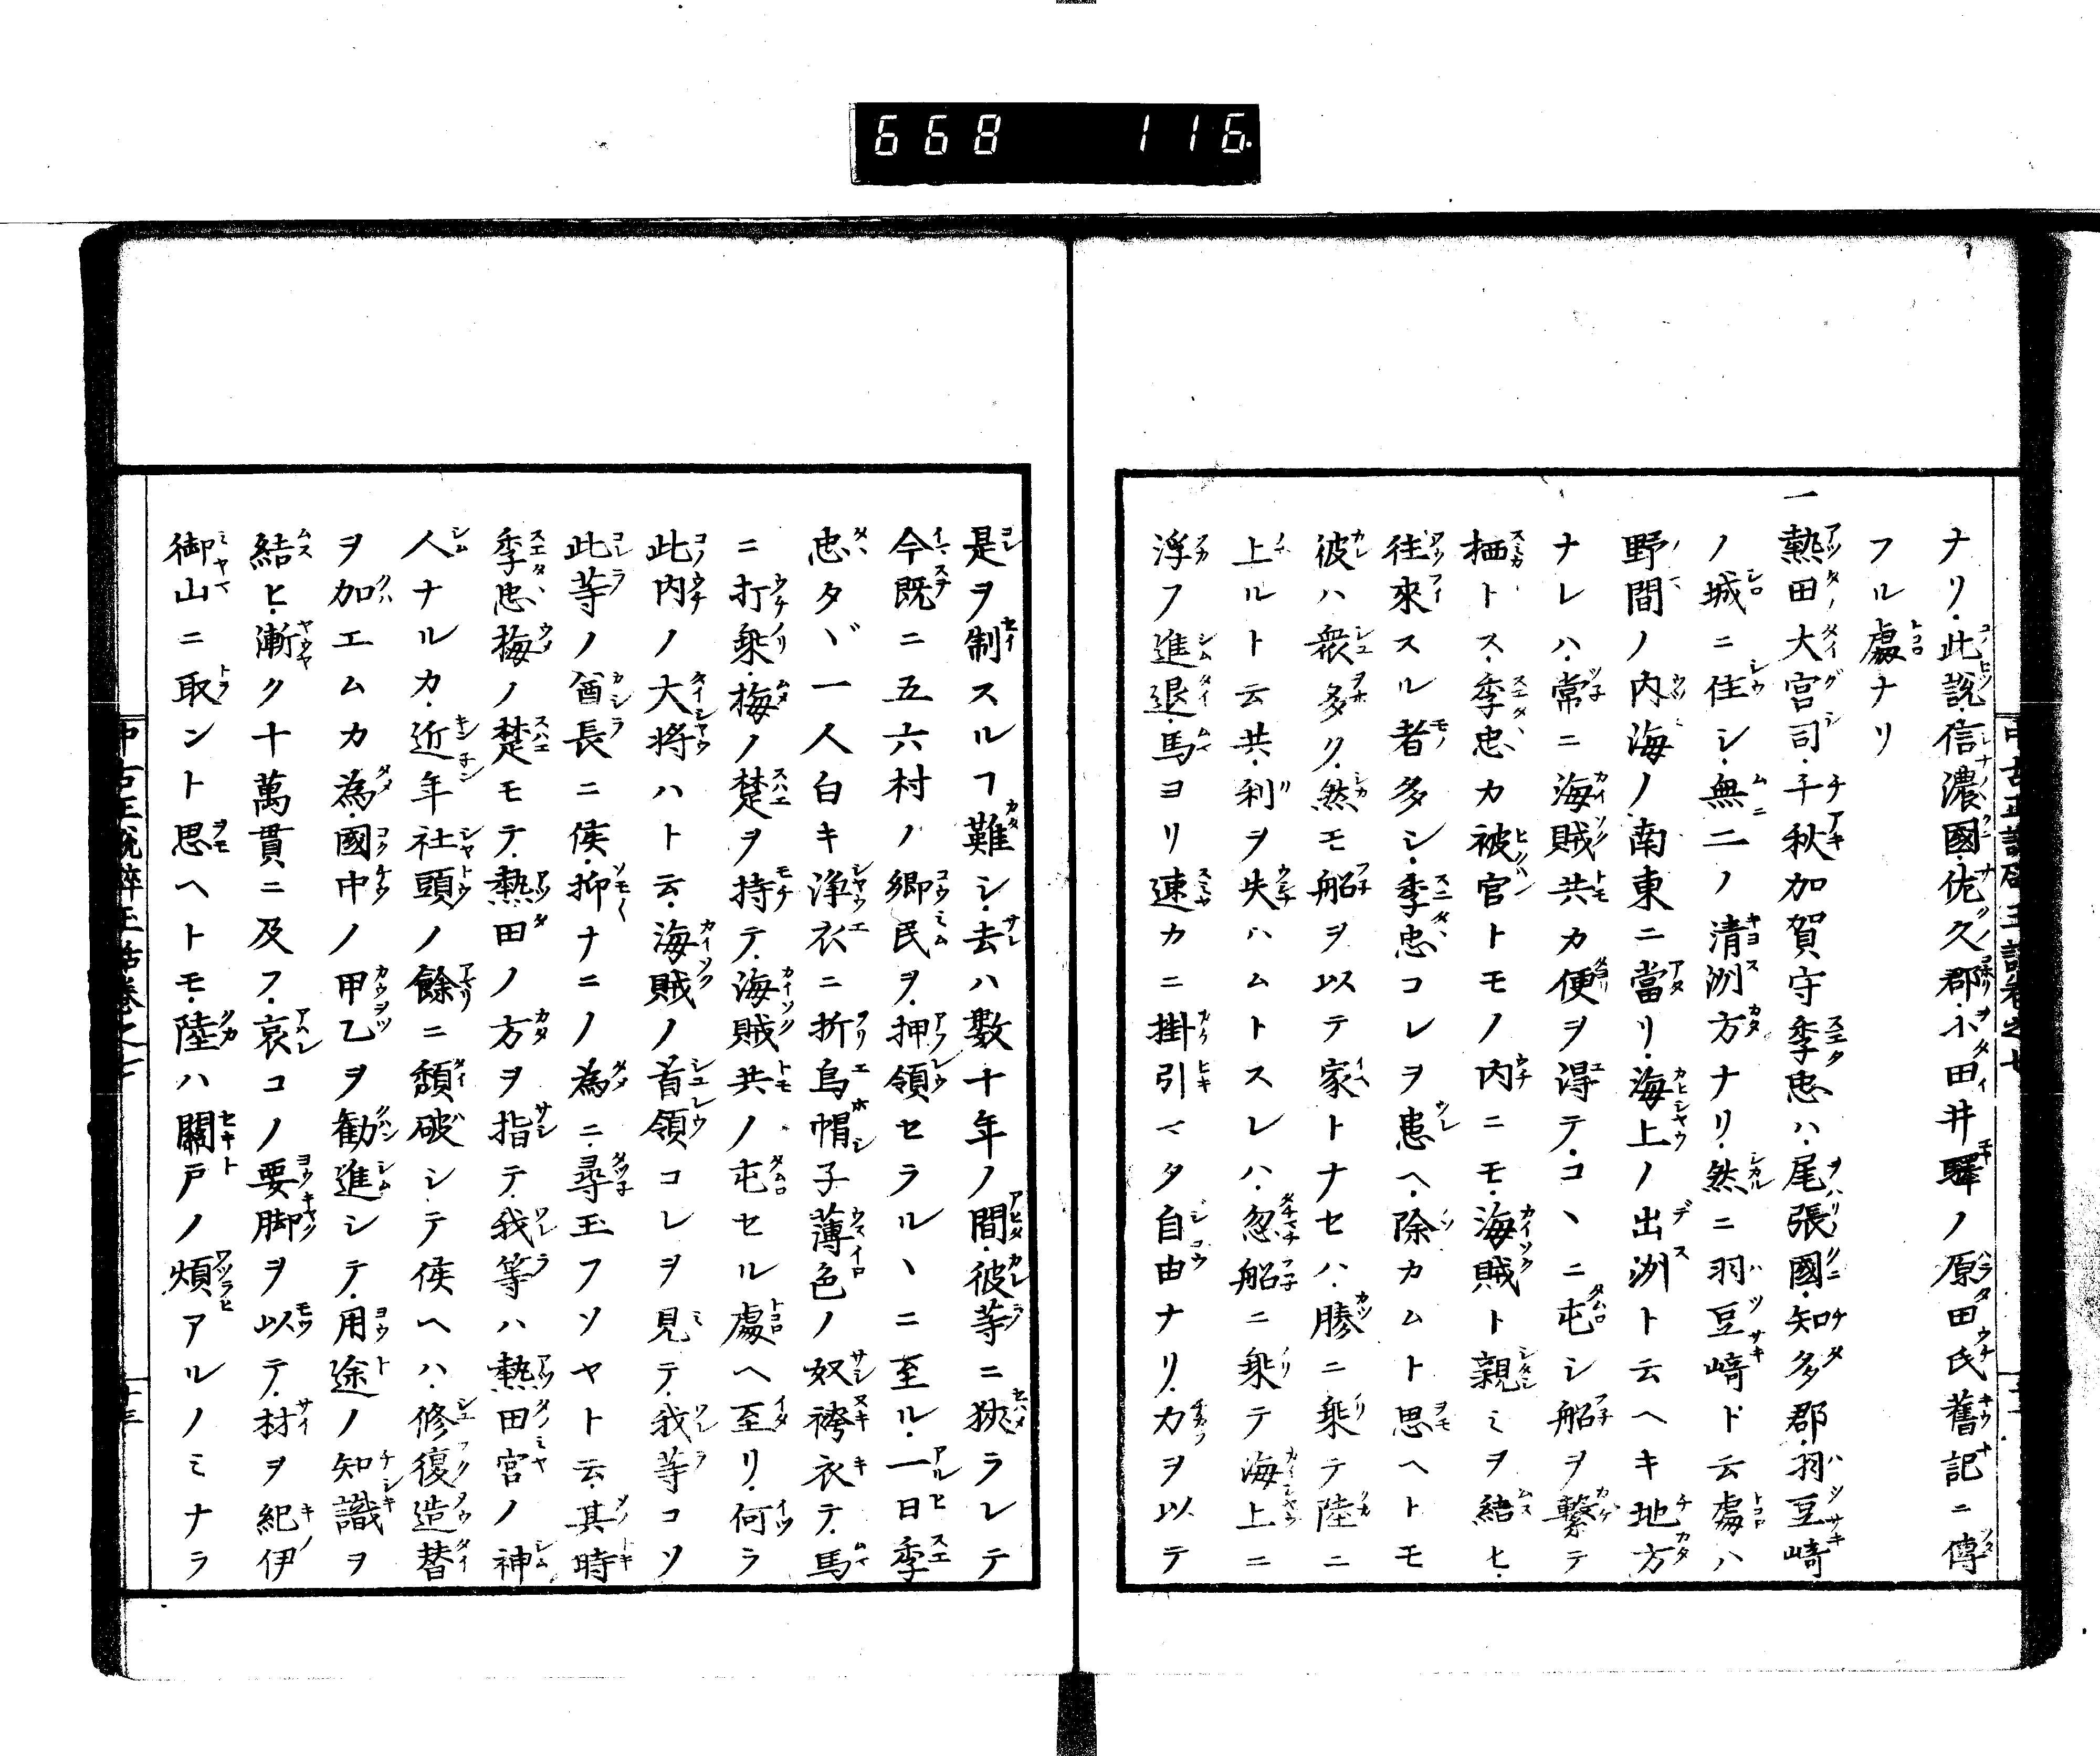 668 116
ナリ・此説・信濃國・佐久郡・小田井驛ノ原田氏舊記ニ傳
フル處ナリ
一熱田大宮司・千秋加賀守季忠ハ・尾張國・知多郡・羽豆﨑
ノ城ニ住シ・無二ノ清洲方ナリ・然ニ羽豆﨑ト云處ハ
野間ノ内海ノ南東ニ當リ・海上ノ出洲ト云ヘキ地方
ナレハ・常ニ海賊共カ便ヲ得テ・コヽニ屯シ船ヲ繋テ
栖トス・季忠カ被官トモノ内ニモ・海賊ト親ミヲ結ヒ・
往來スル者多シ・季忠コレヲ患ヘ・除カムト思ヘトモ
彼ハ衆多ク・然モ船ヲ以テ家トナセハ・勝ニ乗テ陸ニ
上ルト云共・利ヲ失ハムトスレハ・忽船ニ乗テ海上ニ
浮フ進退・馬ヨリ速カニ掛引マタ自由ナリ・力ヲ以テ
是ヲ制スルフ難シ・去ハ數十年ノ間・彼等ニ狹ラレテ
今既ニ五六村ノ郷民ヲ・押領セラルヽニ至ル・一日季
忠タヾ一人白キ浄衣ニ折烏帽子薄色ノ奴袴衣テ・馬
ニ打乗・梅ノ楚ヲ持テ・海賊共ノ屯セル處ヘ至リ・何ラ
此内ノ大将ハト云・海賊ノ首領コレヲ見テ・我等コソ
此等ノ酋長ニ候・抑ナニノ為ニ・尋玉フソヤト云・其時
季忠梅ノ楚モテ・熱田ノ方ヲ指テ・我等ハ熱田宮ノ神
人ナルカ・近年社頭ノ餘ニ頽破シテ候ヘハ・修復造替
ヲ加エムカ為・國中ノ甲乙ヲ勧進シテ・用途ノ知識ヲ
結ヒ・漸ク十萬貫ニ及フ・哀コノ要脚ヲ以テ・材ヲ紀伊
御山ニ取ントト思ヘトモ・陸ハ關戸ノ煩アルノミナラ